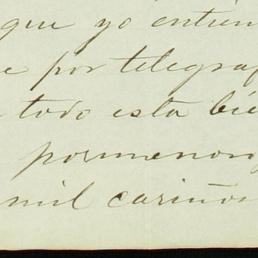 que yo entien
e por telegraf
todo esta bie
pormenor
mil cariño